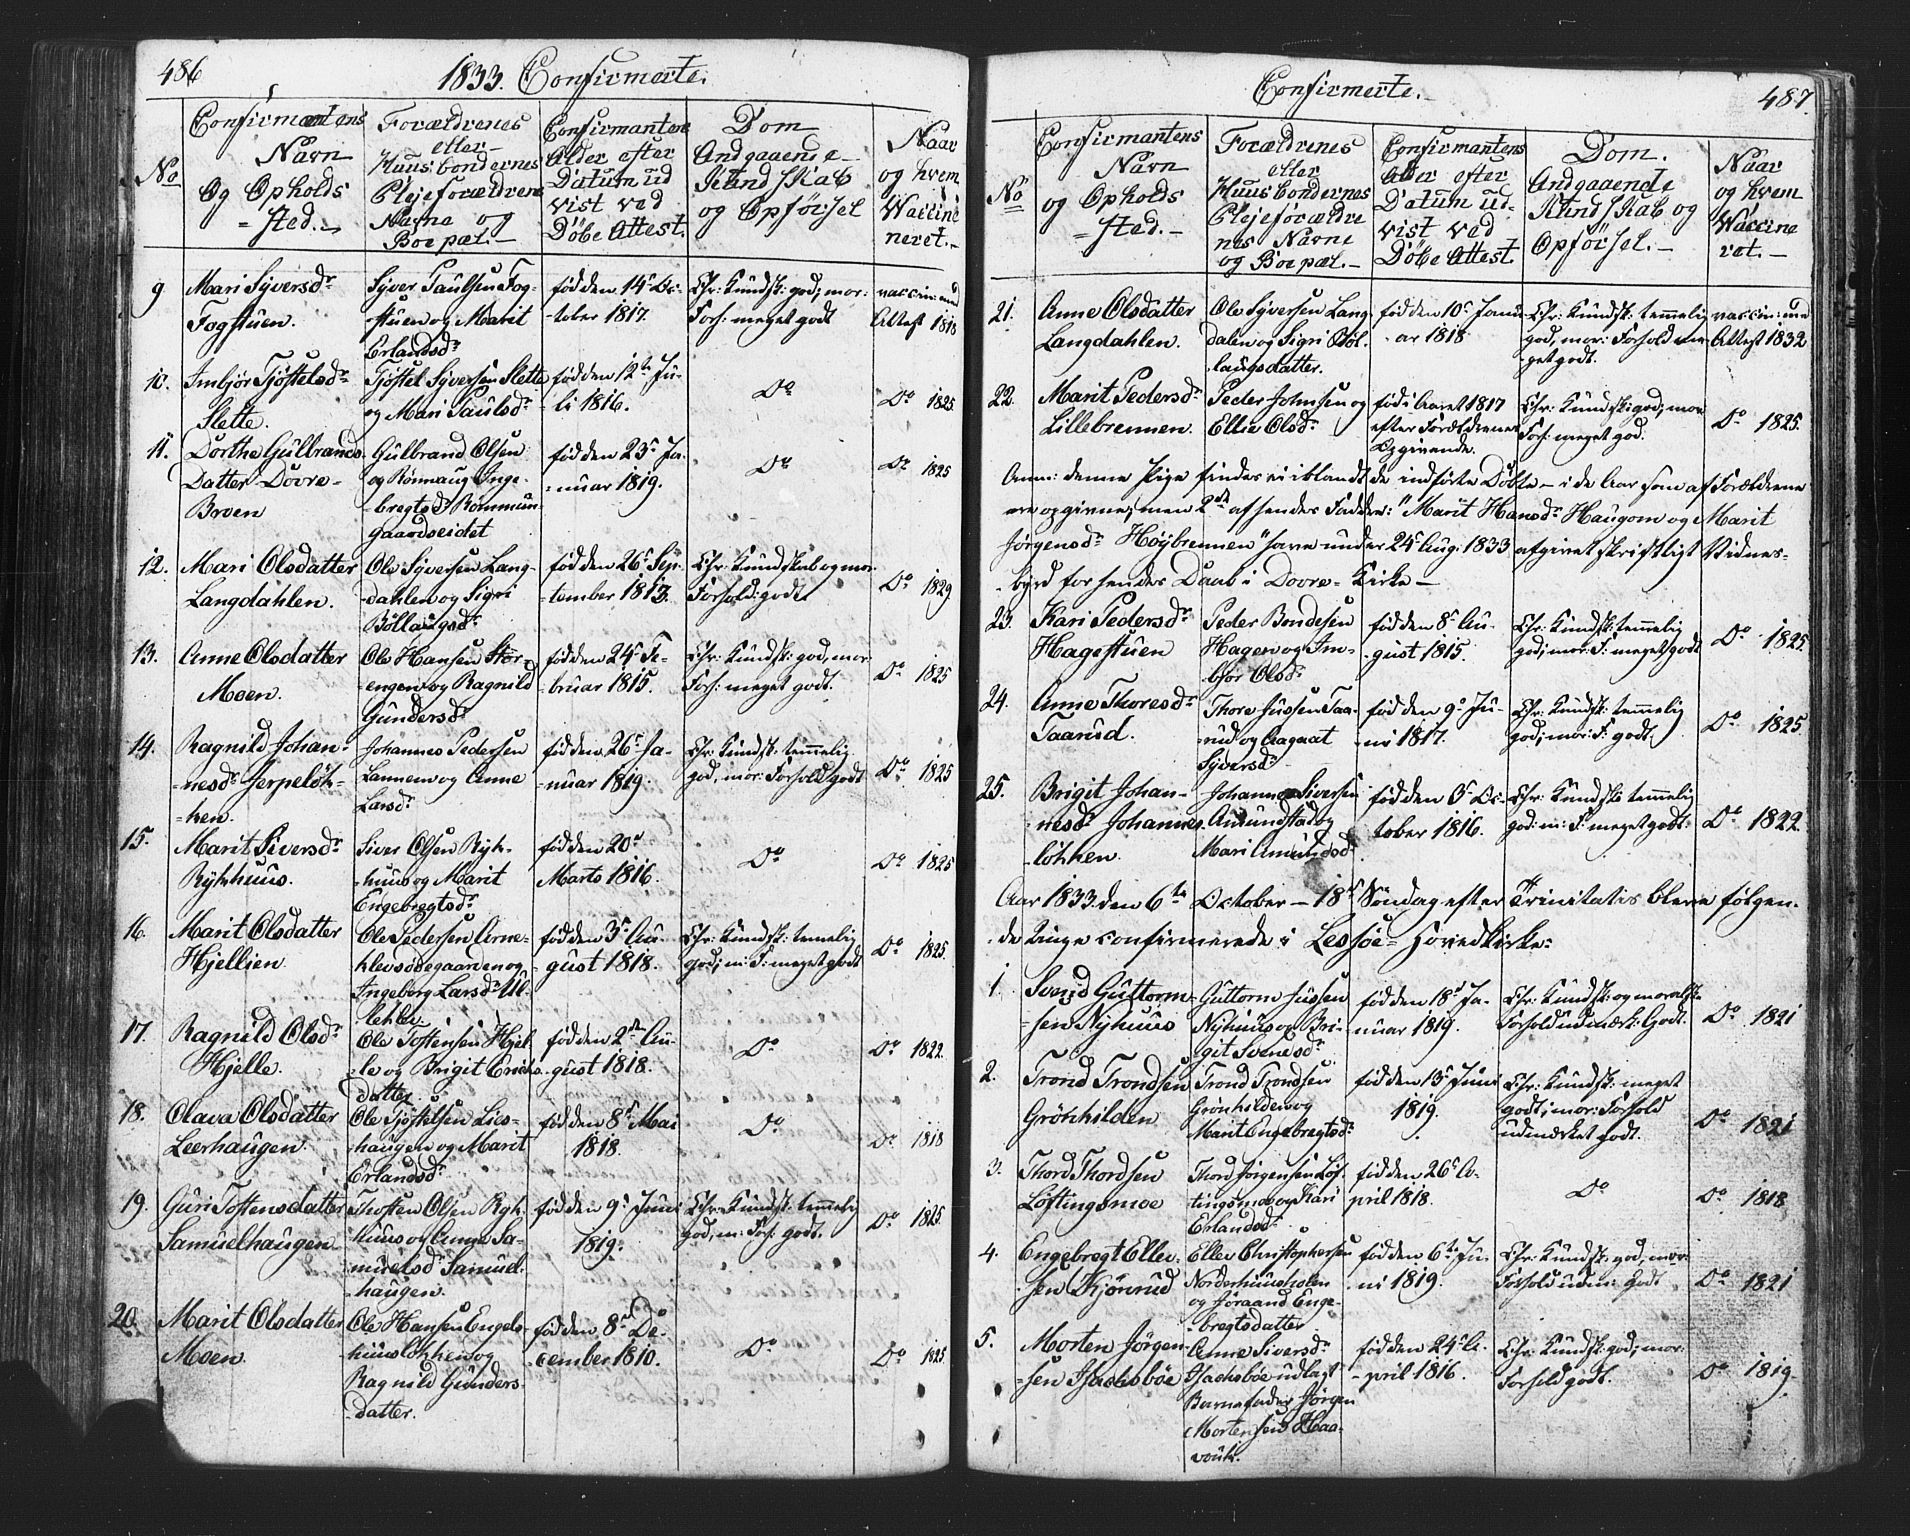 486
1833. Confirmerte.
No
Confirmantens
Navn
Og Opholds
=sted.-
Forældrenes
eller
Huusbondernes
Plejeforældrenes
Navne og
Boepæl.-
Confirmantens
Alder efter
Datum ud
vist ved
Döbe Attest.
Dom
Andgaaende
Kundskab
og Opförsel
Naar
og hvem
Waccine
neret.-
9
Mari Syversdr
Fogstuen.
Syver Paulsen Fog-
stuen og Marit
Erlandsdr
fød den 14de Oc-
-tober 1817.
Chr: Kundsk: god; mor:
Forh: meget godt
vaccin: med
Attest 1818
10.
Imbjør Tjöstelsdr
Slette.
Tjöstel Syversen Slette
og Mari Paulsdr
fød den 12te Ju-
-li 1816.
Do
Do 1825
11.
Dorthe Gulbrands
Datter Dovre-
Broen
Gulbrand Olsen
og Rönnaug Inge-
-bregtsdr Rommun-
gaardseidet
fød den 23de Ja-
-nuar 1819.
Do
Do 1825
12.
Mari Olsdatter
Langdahlen.
Ole Syversen Lang-
-dahlen og Sigri
Böllaugsdr
fød den 26de Sep-
-tember 1813.
Chr: Kundskab og mor:
Forhold: godt
Do 1829
13.
Anne Olsdatter
Moen.
Ole Hansen Stör-
-engen og Ragnild
Gundersdr
fød den 24de Fe-
-bruar 1815.
Chr: Kundsk: god, mor:
Forh: meget godt.
Do 1825
14.
Ragnild Johan-
-nesdr Jerpelök-
-ken.
Johannes Pedersen
Lannem og Anne
Larsdr
fød den 26de Ja-
-nuar 1819.
Chr: Kundsk: temmelig
god, mor: Forhold godt
Do 1825
15.
Marit Siversdr
Rykhuus.
Siver Olsen Ryk-
-huus og Marit
Engebregtsdr
fød den 20de
Marts 1816.
Do
Do 1825
16.
Marit Olsdatter
Hjellien
Ole Pedersen Arne-
klevsödegaarden og
Ingeborg Larsdr Ul-
lekler
fød den 3de Au-
gust 1818.
Chr: Kundsk: temelig
god; m: F: meget godt
Do 1825
17.
Ragnild Olsdr
Hjelle.
Ole Tostensen Hjel-
-le og Brigit Erichs-
datter
fød den 2den Au-
-gust 1818.
Do
Do 1822
18.
Olava Olsdatter
Leerhaugen.
Ole Tjöstelsen Lies-
-haugen og Marit
Erlandsdr
fød den 8de Mai
1818.
Do
Do 1818
19.
Guri Tostensdatter
Samuelhaugen
Thosten Olsen Ryk-
-huus og Anne Sa-
-muelsdr Samuel-
-haugen.
fød den 9de Juni
1819.
Chr: Kundsk: temmelig
god, m: Forh: godt.
Do 1825
20.
Marit Olsdatter
Moen.
Ole Hansen Engels-
huuslökken og
Ragnild Gunders-
-datter.
fød den 8de De-
-cember 1810.
Do
Do 1825.
487
Confirmerte.
No
Confirmantens
Navn
og Opholds
=sted.-
Forældrenes
eller
Huusbondernes
Plejeforældre
nes Navne
og Boepæl.-
Confirmantens
Alder efter
Datum ud-
vist ved
Döbe Attest.
Dom.
Andgaaende
Kundskab og
Opförsel.-
Naar
og hvem
Waccine
ret.-
21.
Anne Olsdatter
Langdahlen.
Ole Syversen Lang-
dalen og Sigri Böl-
laugsdatter.
fød den 10de Janu-
-ar 1818.
Chr: Kundsk: temmelig
god, mor: Forhold me-
-get godt.
vaccin: med
Attest 1832
22
Marit Pedersdr
Lillebrennen.
Peder Johnsen og
Ellie Olsdr
fød i Aaret 1817
efter Forældrenes
Opgivende.
Chr: Kundsk: god; mor:
Forh: meget god.
Do 1825.
Anm: denne Pige findes ei iblandt de indförte Döbte - i de Aar som af Forældrene
ere opgivne; men 2de af hendes Faddere: "Marit Hansdr Haugom og Marit
Jörgensdr Höybrennen" have under 24de Aug: 1833 afgivet skriftligt Vidnes-
-byrd for hendes Daab i Dovre-Kirke-
23.
Kari Pedersdr
Hagestuen
Peder Bondesen
Hagen og Im-
-bjør Olsdr
fød den 8de Au-
-gust 1815.
Chr: Kundsk: temmelig
god; mor: F: meget godt
Do 1825.
24.
Anne Thoresdr
Taarud.
Thore Jussen Taa-
-rud og Aagaat
Syversdr
fød den 9de Ju-
-ni 1817.
Chr: Kundsk: temmelig
god; mor: F: godt.
Do 1825
25.
Brigit Johan-
nesdr Johannes-
-lökken.
Johannes Siversen
Amundstad og
Mari Amundsdr
fød den 3de Oc-
tober 1816.
Chr: Kundsk: temmelig
god: m: F: meget godt:
Do 1822.
Aar 1833. den 6te October - 18de Söndag efter Trinitatis bleve fölgen-
-de Unge confirmerede i Lessöe-Hovedkirke:
1.
Svend Guttorm-
-sen Nyhuus
Guttorm Jussen
Nyhuus og Bri-
git Svensdr
fød den 18de Ja-
nuar 1819.
Chr: Kundsk: og moralsk
Forhold udmærk: Godt.
Do 1821
2.
Trond Trondsen
Grönhilden
Trond Trondsen
Grönhilden og
Marit Engebregtsdr
fød den 13de Juni
1819.
Chr: Kundsk: meget
godt; mor: Forhold
udmærket godt.
Do 1821
3.
Thord Thordsen
Löftingsmoe
Thord Jörgensen Löf-
tingsmoe og Kari
Erlandsdr
fød den 26de A-
pril 1818.
Do
Do 1818
4.
Engebregt Ellev-
-sen Kjönrud
Ellev Christophersen
Norderhuusholen
og Jöraand Enge-
-bregtsdatter
fød den 6te Ju-
-ni 1819.
Chr: Kundsk: god, mor:
Forhold udm: godt
Do 1821
5.
Morten Jörgen-
-sen Isachsböe
Anne Siversdr
Isachsböe udlagt
Barnefader Jörgen
Mortensen Haa-
vork.
fød den 24de A-
-pril 1816.
Chr: Kundsk: god; mor:
Forhold godt.
Do 1819.